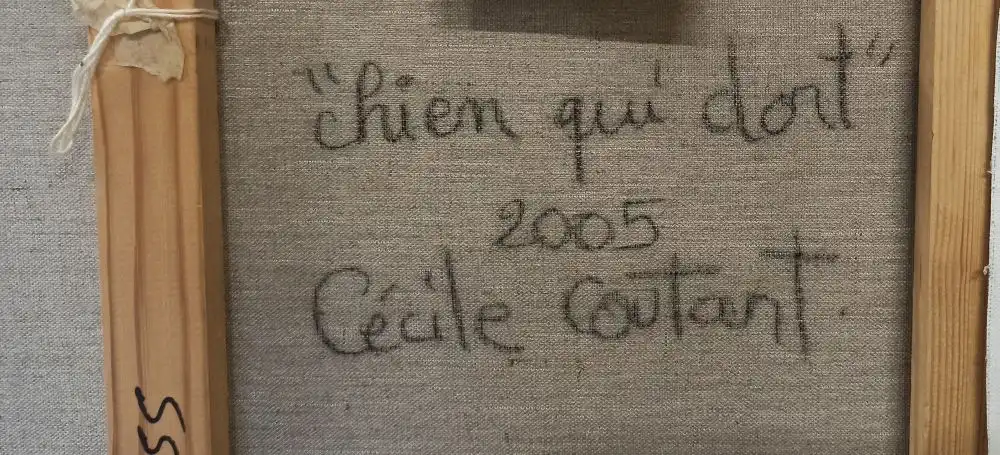 "Chien qui dort"
2005
Cécile Coutant.
55